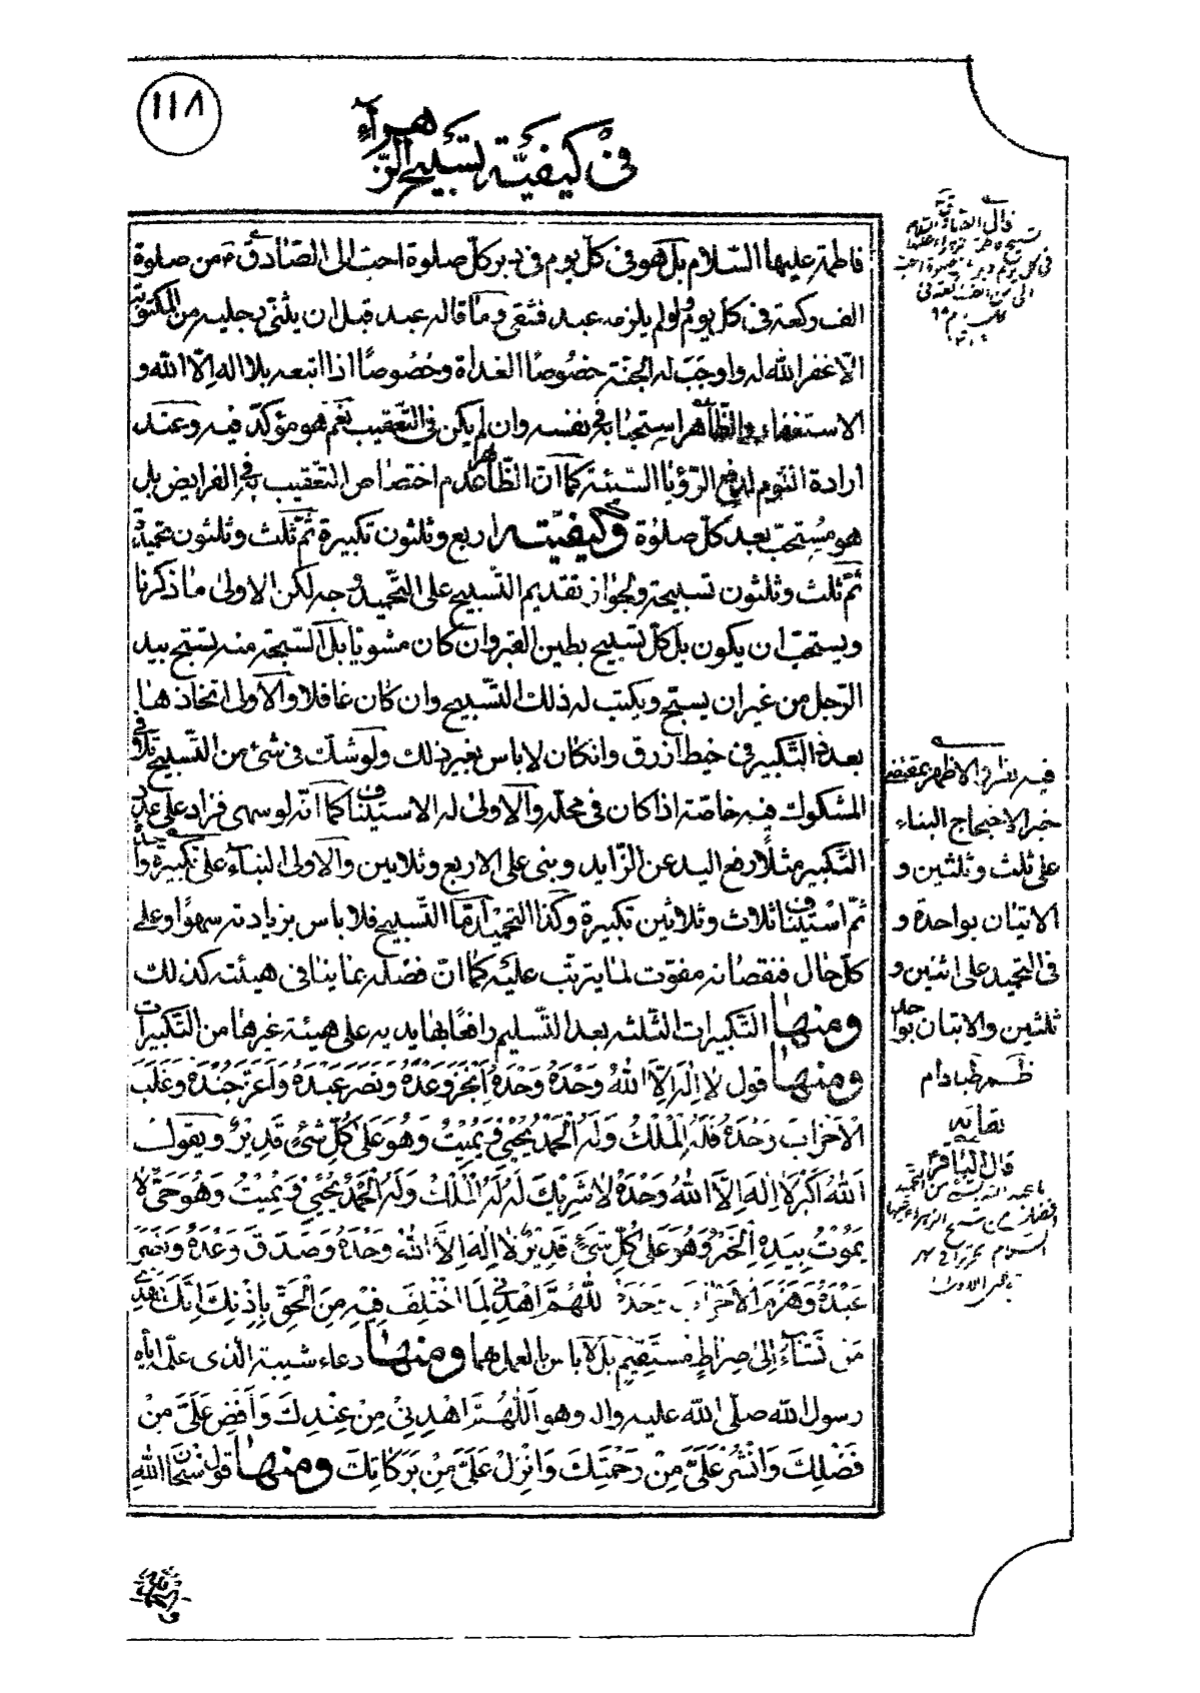 ١١٨
في كيفيّة تسبيح الزّهراء
فاطمة عليها السّلام بل هو في كلّ يوم في دبر كلّ صلوة احبّ الى الصّادق ع من صلوة
الف ركعة في كل يوم ولم يلزمه عبد فشقى وما قاله عبد قبل ان يثنى رجليه من المكتوبة
الّا غفر الله له واوجب له الجنّة خصُوصًا الغداة وخصُوصًا اذا اتبعه بلا اله الّا الله و
الاستغفار والظّاهر استحبابه في نفسه وان لم يكن في التّعقيب نعم هو مؤكّد فيه وعند
ارادة النّوم لدفع الرّؤيا السّيئة كما انّ الظّاهر عدم اختصاص التّعقيب به في الفرايض بل
هو مُستحبّ بعد كلّ صلوٰة وكيفيّته اربع وثلثون تكبيرة ثمّ ثلث وثلثون تحميدة
ثمّ ثلث وثلثون تسبيحة ولجواز تقديم التّسبيح على التّحميد وجه لكن الاولى ما ذكرنا
ويستحبّ ان يكون بل كلّ تسبيح بطين القبر وان كان مشويّا بل السّبحة منه تسبّح بيد
الرّجل من غير ان يسبّح ويكتب له ذلك التّسبيح وان كان غافلا والاولى اتخاذها
بعدد التّكبير في خيط ازرق وانكان لا باس بغير ذلك ولو شكّ في شئ من التّسبيح تلافى
المشكوك فيه خاصّة اذا كان في محلّه والاولى له الاستيناف كما انّه لو سهى فزاد على عدد
التّكبير مثلًا رفع اليد عن الزّايد وبنى على الاربع وثلاثين والاولى البنآء على تكبيرة واحدة
ثمّ استيناف ثلاث وثلاثين تكبيرة وكذا التحميد امّا التّسبيح فلا باس بزيادته سهوًا وعلى
كلّ حال فنقصانه مفوّت لما يترتّب عليه كما انّ فصله بما ينافى هيئته كذلك
ومنها التّكبيرات الثّلثه بعد التّسليم رافعًا بها يديه على هيئة غيرها من التّكبيرات
ومنها قول لا اِلهَ اِلّا اللهُ وَحْدَهُ وَحْدَهُ اَنْجَزَ وَعْدَهُ وَنَصَرَ عَبْدَهُ وَاَعَزَّ جُنْدَهُ وَغَلَبَ
الْاَحْزابَ وَحْدَهُ فَلَهُ الْمُلْكُ وَلَهُ الْحَمْدُ يُحْيِي وَيُمِيْتُ وَهُوَ عَلى كُلِّ شَئٍ قَدِيْرٌ ويقول
اَللهُ اَكْبَرُ لا اِلهَ اِلَّا اللهُ وَحْدَهُ لا شَرِيْكَ لَهُ لَهُ الْمُلْكُ وَلَهُ الْحَمْدُ يُحْيِي وَيُمِيْتُ وَهُوَ حَيٌّ لا
يَمُوْتُ بِيَدِهِ الْخَيْرُ وَهُوَ عَلى كُلِّ شَئٍ قَدِيْرٌ لا اِلهَ اِلَّا اللهُ وَحْدَهُ وَصَدَقَ وَعْدَهُ وَنَصَرَ
عَبْدَهُ وَهَزَمَ الْاَحْزابَ وَحْدَهُ اللّهُمَّ اهْدِنِي لِمَا اخْتُلِفَ فِيْهِ مِنَ الْحَقِّ بِاِذْنِكَ اِنَّكَ تَهْدِي
مَنْ تَشَآءُ اِلى صِراطٍ مُسْتَقِيْمٍ بل لا باس بالعمل بهما ومنها دعاء شيبة الذى علّمه اياه
رسول الله صلّى الله عليه واله وهو اَللّهُمَّ اهْدِنِيْ مِنْ عِنْدِكَ وَاَفِضْ عَلَيَّ مِنْ
فَضْلِكَ وَانْشُرْ عَلَيَّ مِنْ رَحْمَتِكَ وَانْزِلْ عَلَيَّ مِنْ بَرَكاتِكَ ومنها قول سُبْحانَ اللهِ
قال الصادق عليه السلام
تسبيح فاطمة الزهراء عليها
في كل يوم دبر كل صلوة احب
الى من الف ركعة في
كل يوم
فيه نظر والاظهر بمقتضى
خبر الاحتجاج البناء
على ثلث وثلثين و
الاتيان بواحدة و
في التحميد على اثنين و
ثلثين والاتيان بواحد
ظم طبا دام
بقاءه
قال الباقر
ما عبد الله بشئ من التحميد
افضل من تسبيح الزهراء عليها
السلام